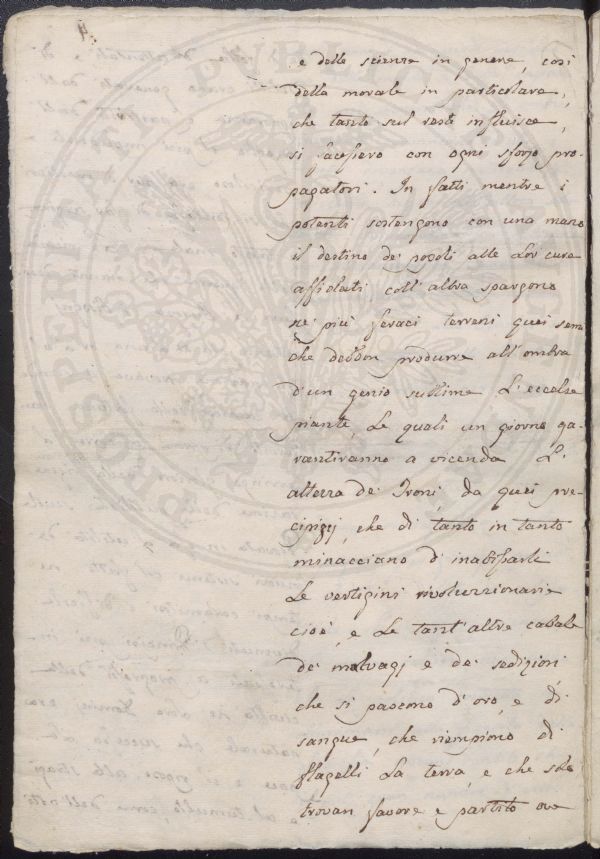 e delle scienze in genere, così
della morale in particolare,
che tanto sul resto influisce,
si facessero con ogni sforzo pro-
pagatori. In fatti mentre i
potenti sostengono con una mano
il destino de' popoli alle Lor cure
affidati coll' altra spargono
ne' più feraci terreni quei semi
che debbon produrre all' ombra
d'un genio sublime L' eccelse
piante, Le quali un giorno ga-
rantiranno a vicenda L'
altezza de' Troni, da quei pre-
cipizj, che di tanto in tanto
minacciano d' inabissarli
Le vertigini rivoluzzionarie
cioè, e Le tant' altre cabale
de' malvagj e de' sediziosi,
che si pascono d'oro, e di
sangue, che riempiono di
flagelli La terra, e che solo
trovan favore e partito ove
PROSPERITATI PUBLICAE